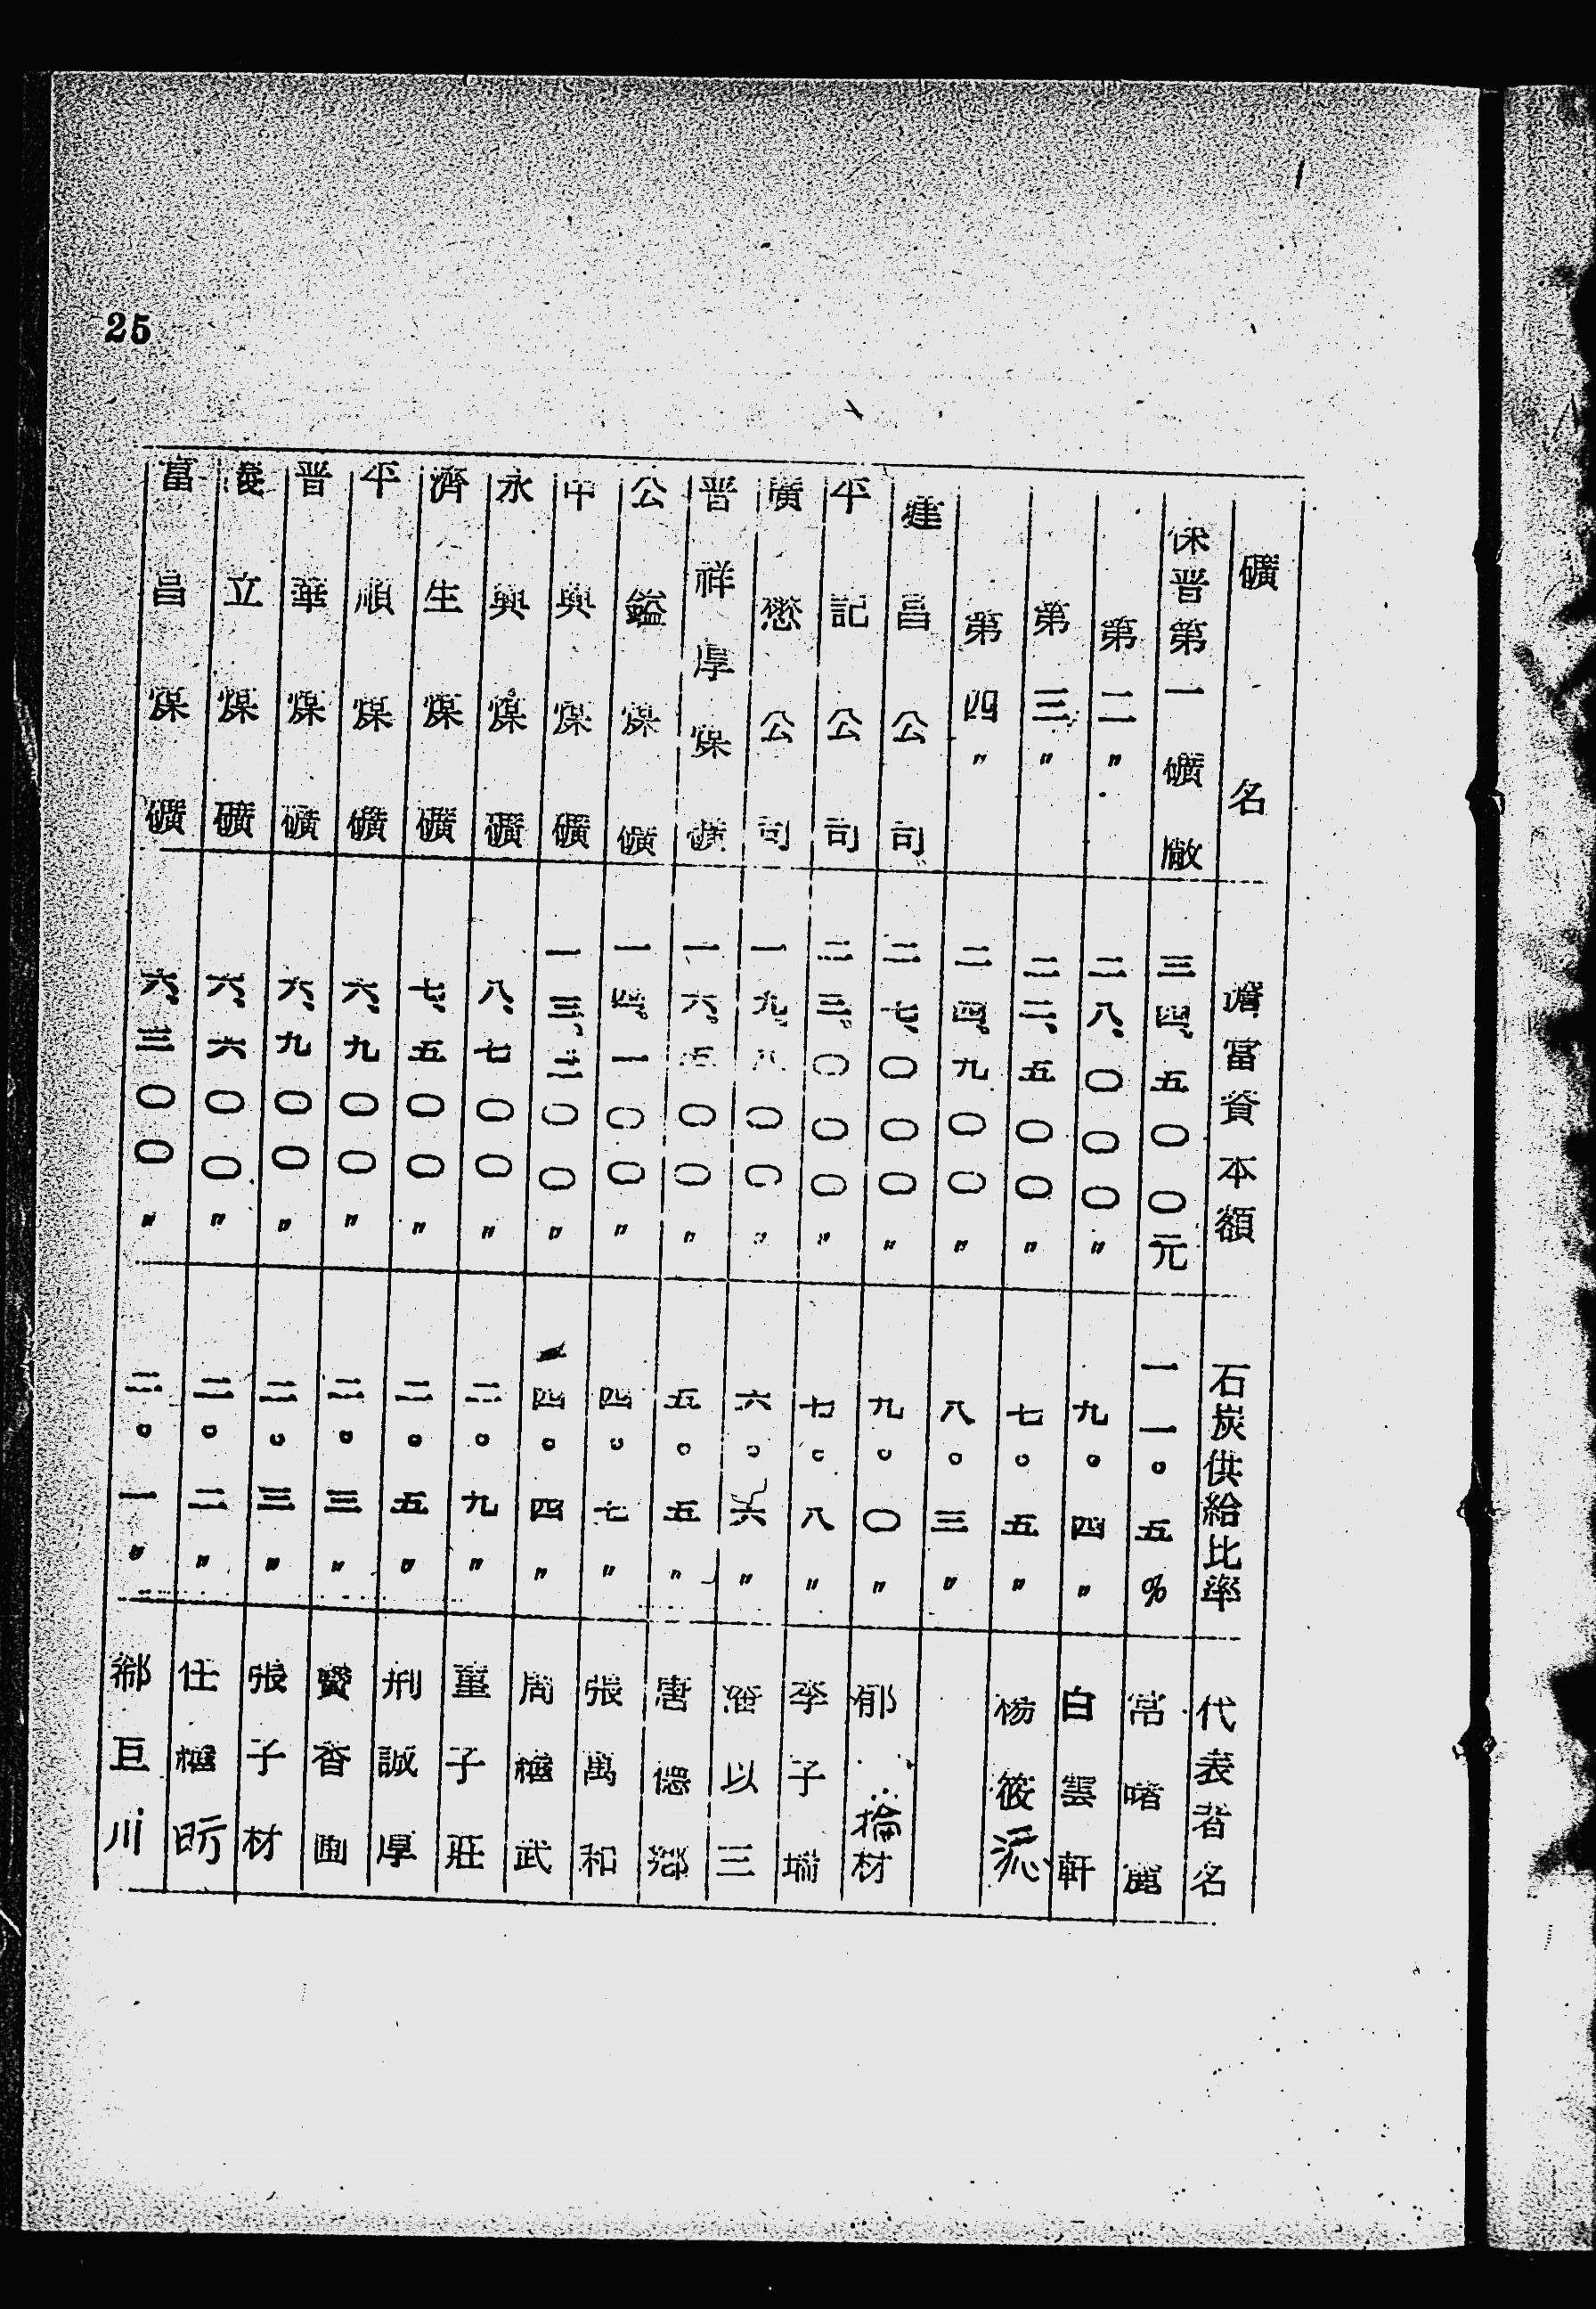 25
礦名 擔當資本額 石炭供給比率 代表者名
保晋第一礦廠 三四、五〇〇元 一一。五% 常
第二〃 二八、〇〇〇〃 九。四〃 白雲軒
第三〃 二二、五〇〇〃 七。五〃 楊筱
第四〃 二四、九〇〇〃 八。三〃
建昌公司 二七、〇〇〇〃 九。〇〃 郁掄材
平記公司 二三、〇〇〇〃 七。八〃 李子瑞
廣懋公司 一九、八〇〇〃 六。六〃 以三
晋祥厚煤礦 一六、五〇〇〃 五。五〃 唐德鄉
公鎰煤礦 一四、一〇〇〃 四。七〃 張萬和
中興煤礦 一三、二〇〇〃 四。四〃 周樾武
永興煤礦 八、七〇〇〃 二。九〃 董子莊
濟生煤礦 七、五〇〇〃 二。五〃 荊誠厚
平順煤礦 六、九〇〇〃 二。三〃 香圃
晋華煤礦 六、九〇〇〃 二。三〃 張子材
濬立煤礦 六、六〇〇〃 二。二〃 任樾昕
富昌煤礦 六、三〇〇〃 二。一〃 郗巨川